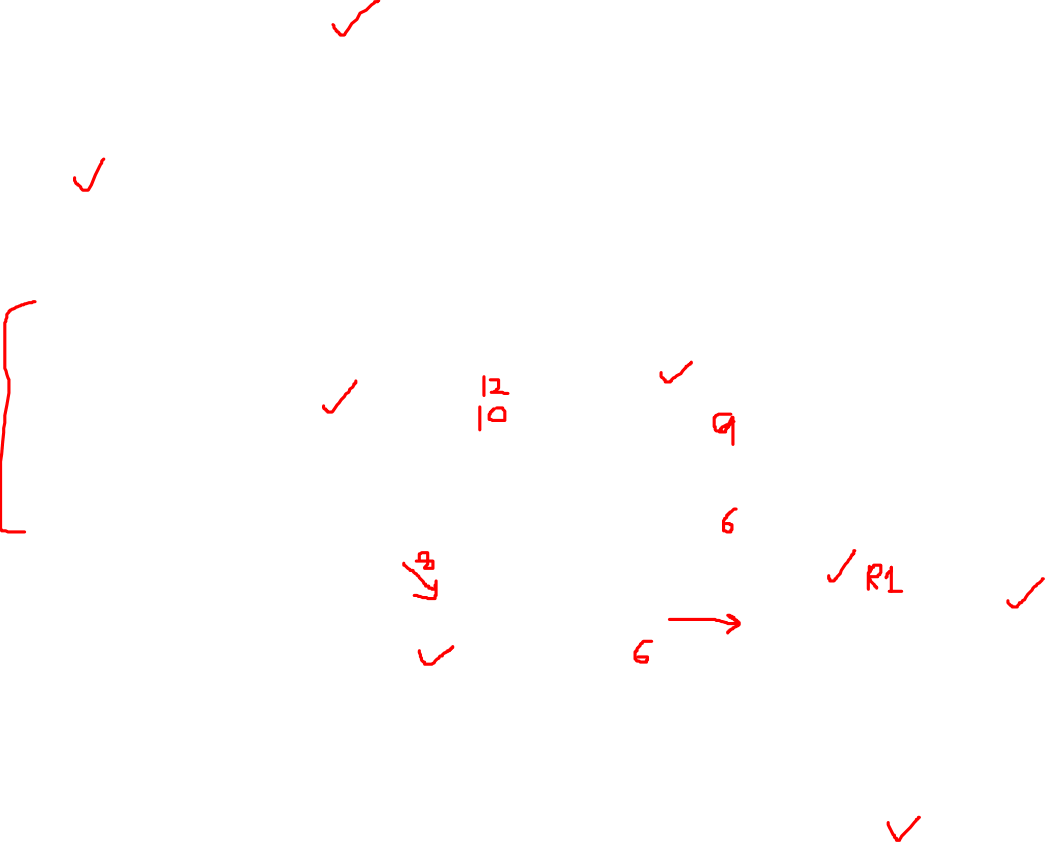 12
10
9
6
8
R1
6